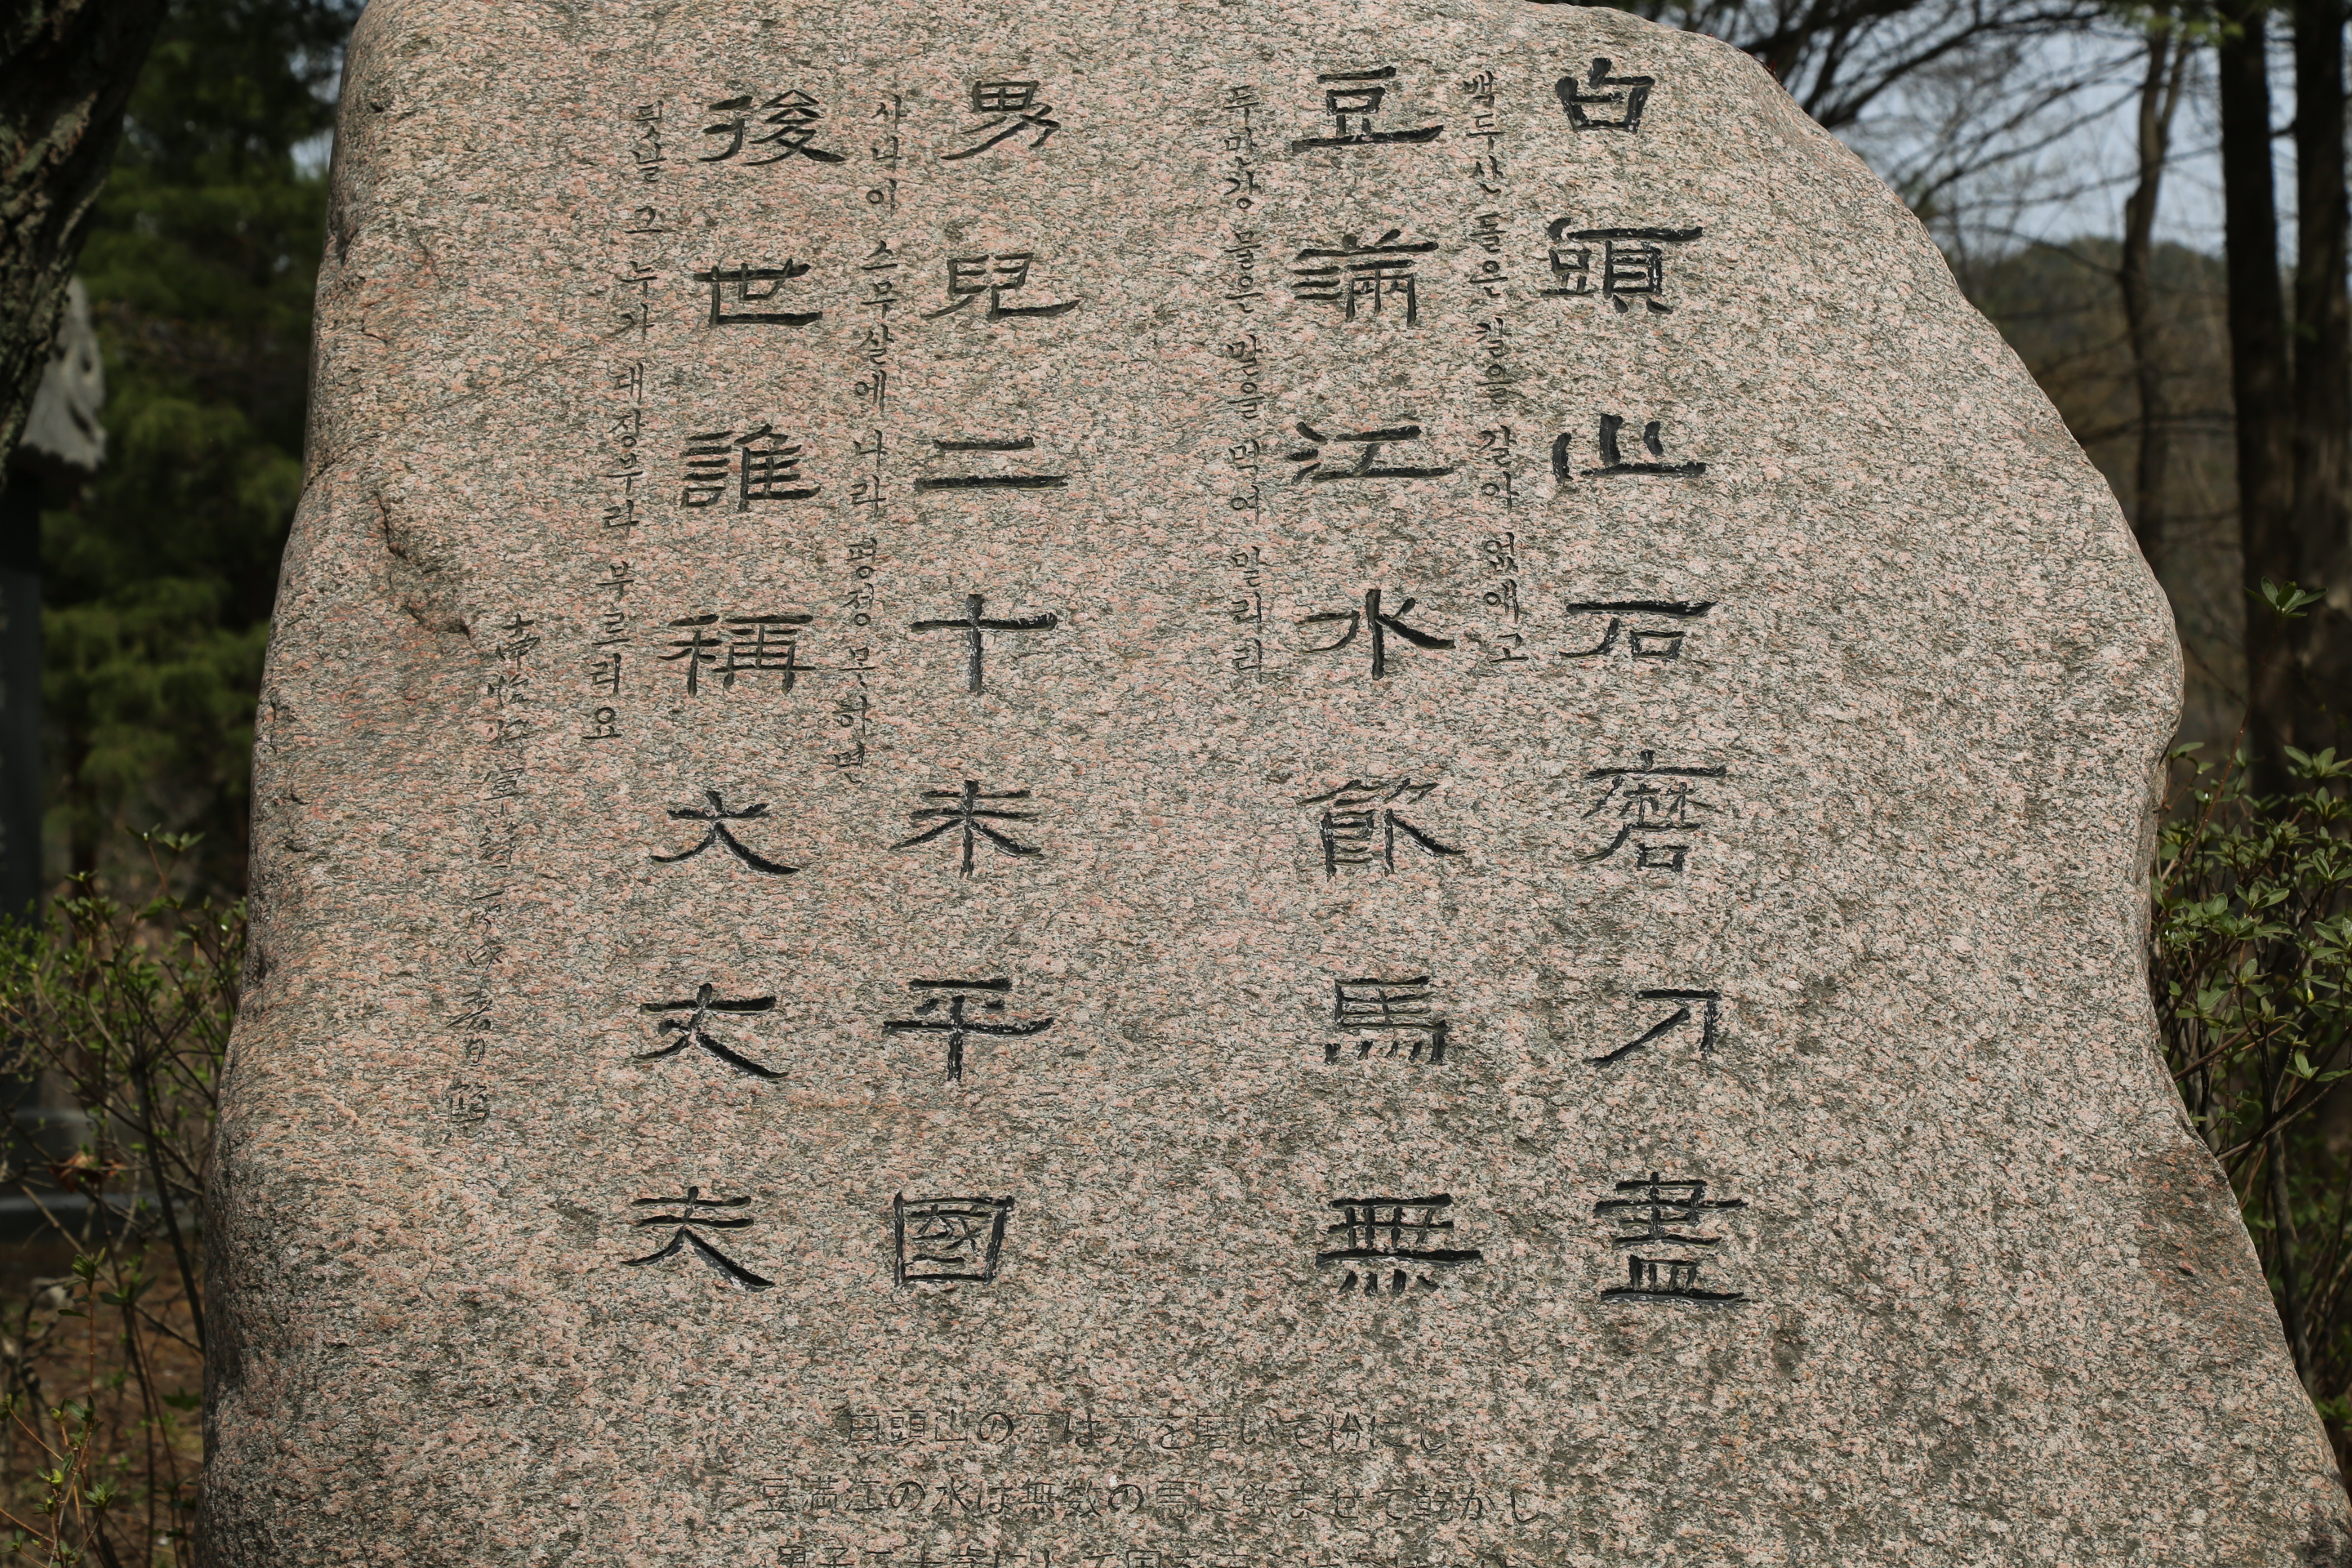 白頭山石磨刀盡
백두산 돌은 칼을 갈아 없애고
豆滿江水飮馬無
두만강 물은 말을 먹여 말리리
男兒二十未平國
사나이 스무살에 나라 평정 못하면
後世誰稱大丈夫
뒷날 그 누가 대장부라 부르리요
南怡將軍詩
白頭山の石は刀を磨いて粉にし
豆満江の水は無数の馬に飲ませて乾かし
男子二十歳にして国を